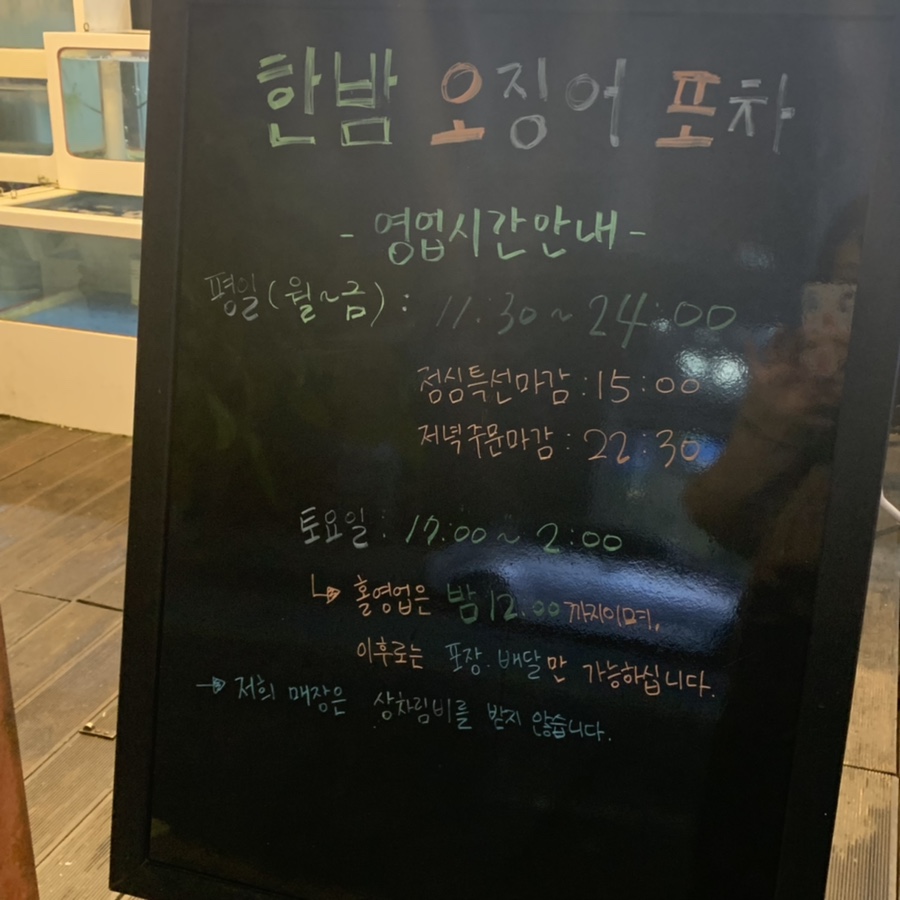 한밤 오징어 포차
- 영업시간안내 -
평일(월~금) : 11:30 ~ 24:00
점심특선마감 : 15:00
저녁주문마감 : 22:30
토요일 : 17:00 ~ 2:00
↳ 홀영업은 밤 12:00 까지이며,
이후로는 포장.배달만 가능하십니다.
→ 저희 매장은 상차림비를 받지 않습니다.